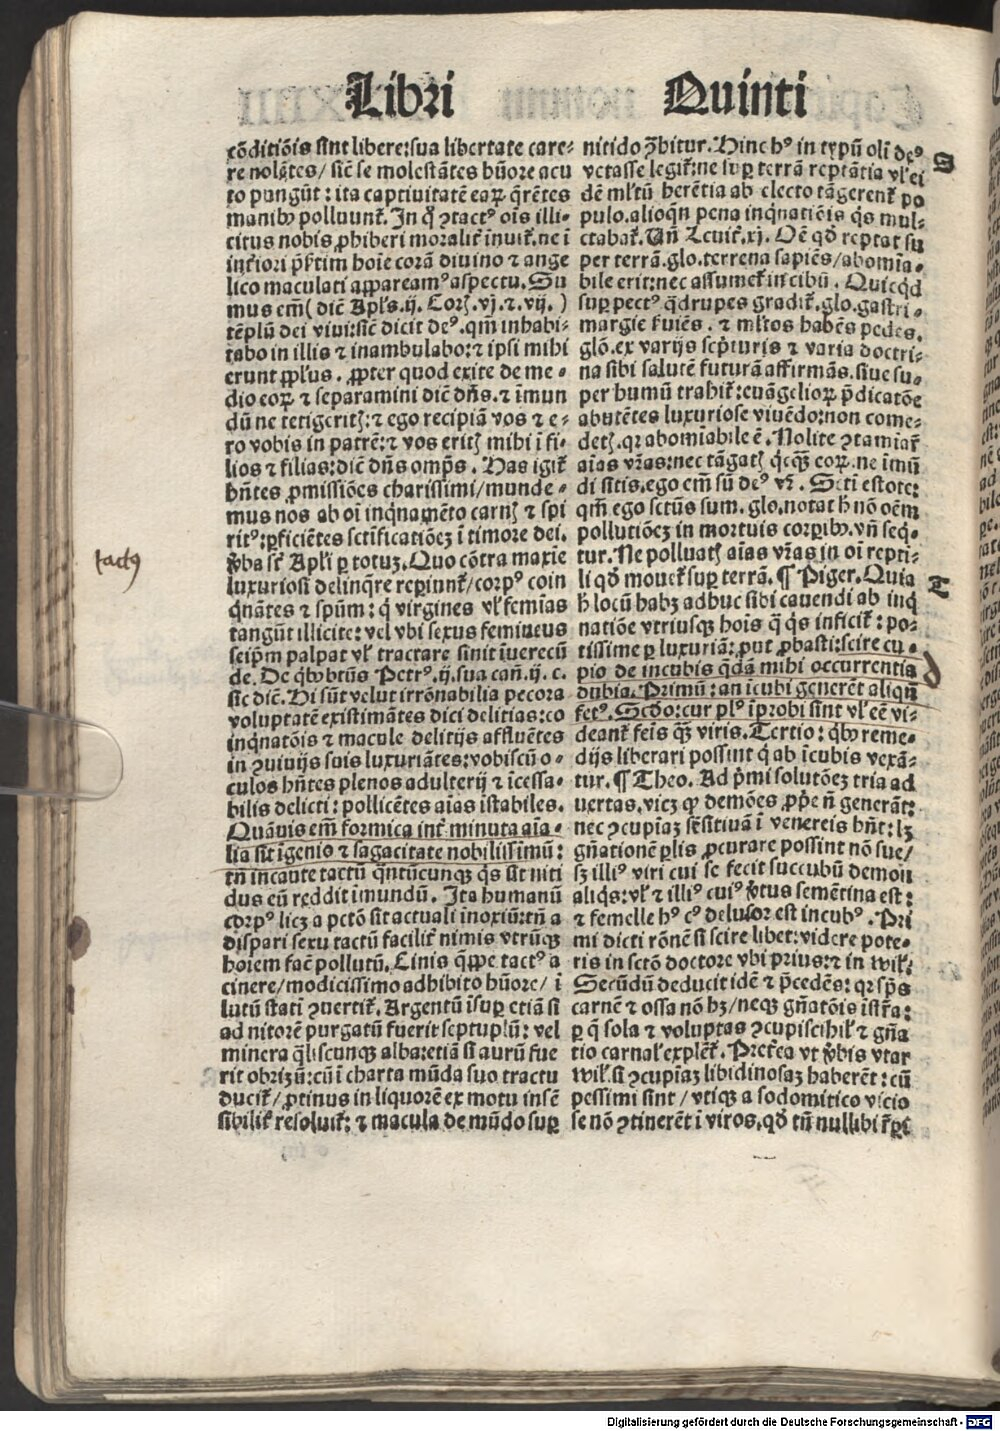 Libri Quinti
cõditiõis sint libere: sua libertate care-
re nolẽtes/ sicẽ se molestãtes hũore acu
to pungũt: ita captiuitatẽ eaꝝ q̃rẽtes
manibꝰ polluunt̃. In q̃ ꝯtactꝰ oĩs illi-
citus nobis ꝓhiberi moralit̃ ĩnuit̃. ne ĩ
inferiori p̃s̃tim hoĩe corã diuino ⁊ ange
lico maculati appareamꝰ aspectu. Su
mus em̃ ( dic̃ Apl's. ij. Corꝭ. vj. ⁊. vij. )
tẽplũ dei viui: sic̃ dicit deꝰ. qm̃ inhabi-
tabo in illis ⁊ inambulabo: ⁊ ipsi mihi
erunt ppl'us. ꝓpter quod exite de me-
dio eoꝝ ⁊ separamini dic̃ dñs. ⁊ ĩmun
dũ ne tetigeritꝭ: ⁊ ego recipiã vos ⁊ e-
ro vobis in patrẽ: ⁊ vos eritꝭ mihi ĩ fi-
lios ⁊ filias: dic̃ dñs omp̃s. Has igit̃
hñtes ꝓmissiões charissimi/ munde-
mus nos ab oĩ inq̃namẽto carnꝭ ⁊ spi
ritꝰ: ꝑficiẽtes sctificatiõeꝫ ĩ timore dei.
v̓ba sc̃ Apl'i ꝑ totuꝫ. Quo cõtra maxie
luxuriosi delinq̃re reꝑiunt̃/ corpꝰ coin
q̃nãtes ⁊ spm̃: q̃ virgines vl' femĩas
tangũt illicite: vel vbi sexus femineus
seip̃m palpat vl' tractare sinit ĩuerecũ
de. De q̃bꝰ btũs Petrꝰ. ij. sua cañ. ij. c.
sic dic̃. Hi sũt velut irrõnabilia pecora
voluptatẽ existimãtes dici delitias: co
inq̃natõis ⁊ macule delitijs affluẽtes
in ꝯuiuijs suis luxuriãtes: vobiscũ o-
culos hñtes plenos adulterij ⁊ ĩcessa-
bilis delicti: pollicẽtes aĩas ĩstabiles.
Quãuis em̃ formica int̃ minuta aĩa-
lia sit ĩgenio ⁊ sagacitate nobilissimũ:
tñ incaute tactũ q̃ntũcunqꝫ q̃s sit niti
dus eũ reddit ĩmundũ. Ita humanũ
corpꝰ licꝫ a pctõ sit actuali inoxiũ: tñ a
dispari sexu tactũ facilit̃ nimis vtrũqꝫ
hoĩem fac̃ pollutũ. Cinis q̃ppe tactꝰ a
cinere/ modicissimo adhibito hũore/ ĩ
lutũ statĩ ꝯuertit̃. Argentũ ĩsuꝑ etiã si
ad nitorẽ purgatũ fuerit septuplũ: vel
minera q̃liscunqꝫ alba: etiã si aurũ fue
rit obrizũ: cũ ĩ charta mũda suo tractu
ducit̃/ ꝓtinus in liquorẽ ex motu insẽ
sibilit̃ resoluit̃: ⁊ macula de mũdo suꝑ
nitido ꝓ̃hitur. Hinc hꝰ in typũ oli deꝰ
vetasse legit̃: ne suꝑ terrã reptãtia vl' ei
dẽ ml'tũ herẽtia ab electo tãgerent̃ po
pulo. alioqñ pena inq̃natiẽis q̃s mul-
ctabat̃. Uñ Leuit̃. xj. Oẽ qd' reptat su
per terrã. glo. terrena sapiẽs/ abomĩa-
bile erit: nec assumet̃ in cibũ. Quicq̃d
suꝑ pectꝰ q̃drupes gradit̃. glo. gastri-
margie ſuiẽs. ⁊ ml'tos habẽs pedes.
glõ. ex varijs sc̓pturis ⁊ varia doctri-
na sibi salutẽ futurã affirmãs. siue su-
per humũ trahit̃: euãgelioꝝ p̃dicatõe
abutẽtes luxuriose viuẽdo: non come-
detꝭ. qꝛ abomĩabile ẽ. Nolite ꝯtamĩar̃
aĩas vr̃as: nec tãgatꝭ q̃cq̃ꝫ eoꝝ. ne ĩmũ
di sitis. ego em̃ sũ deꝰ vr̃. Scti estote:
qm̃ ego sctũs sum. glo. notat h̃ nõ oẽm
pollutiõeꝫ in mortuis corꝑibꝰ. vñ seq̃-
tur. Ne polluatꝭ aĩas vr̃as in oĩ repti-
li qd' mouet̃ suꝑ terrã. ¶ Piger. Quia
h̃ locũ habꝫ adhuc sibi cauendi ab inq̃
natiõe vtriusqꝫ hoĩs q̃ q̃s inficit̃: po-
tissime ꝑ luxuriã: ꝓut ꝓbasti: scire cu-
pio de incubis q̃dã mihi occurrentia
dubia. Primũ: an ĩcubi generẽt aliqñ
fetꝰ. Secd̃o: cur plꝰ ĩprobi sint vl' eẽ vi-
deant̃ feĩs q̃ꝫ viris. Tertio: q̃bꝰ reme-
dijs liberari possint q̃ ab ĩcubis vexã-
tur. ¶ Theo. Ad p̃mi solutõeꝫ tria ad
uertas. vicꝫ ꝙ demões ꝓp̃e ñ generãt:
nec ꝯcupĩaꝫ sẽsitiuã ĩ venereis hñt: lꝫ
gñationẽ ꝓlis ꝓcurare possint nõ sue/
sꝫ illiꝰ viri cui se fecit succubũ demon
aliqs: vl' ⁊ illiꝰ cuiꝰ v̓tus semẽtina est:
⁊ femelle hꝰ cꝰ delusor est incubꝰ. Pri
mi dicti rõnẽ si scire libet: videre pote-
ris in sctõ doctore vbi prius: ⁊ in wil':
Secũdũ deducit idẽ ⁊ p̃cedẽs: qꝛ sp̃s
carnẽ ⁊ ossa nõ hꝫ/ neqꝫ gñatõis ĩstr̃a:
ꝑ q̃ sola ⁊ voluptas ꝯcupiscibil' ⁊ gña
tio carnal' explẽt̃. Pret̃ea vt v̓bis vtar
wil'. si ꝯcupĩaꝫ libidinosaꝫ haberẽt: cũ
pessimi sint/ vtiqꝫ a sodomitico vicio
se nõ ꝯtinerẽt ĩ viros. qd' tñ nullibi
S
T
tactꝰ
Digitalisierung gefördert durch die Deutsche Forschungsgemeinschaft - DFG